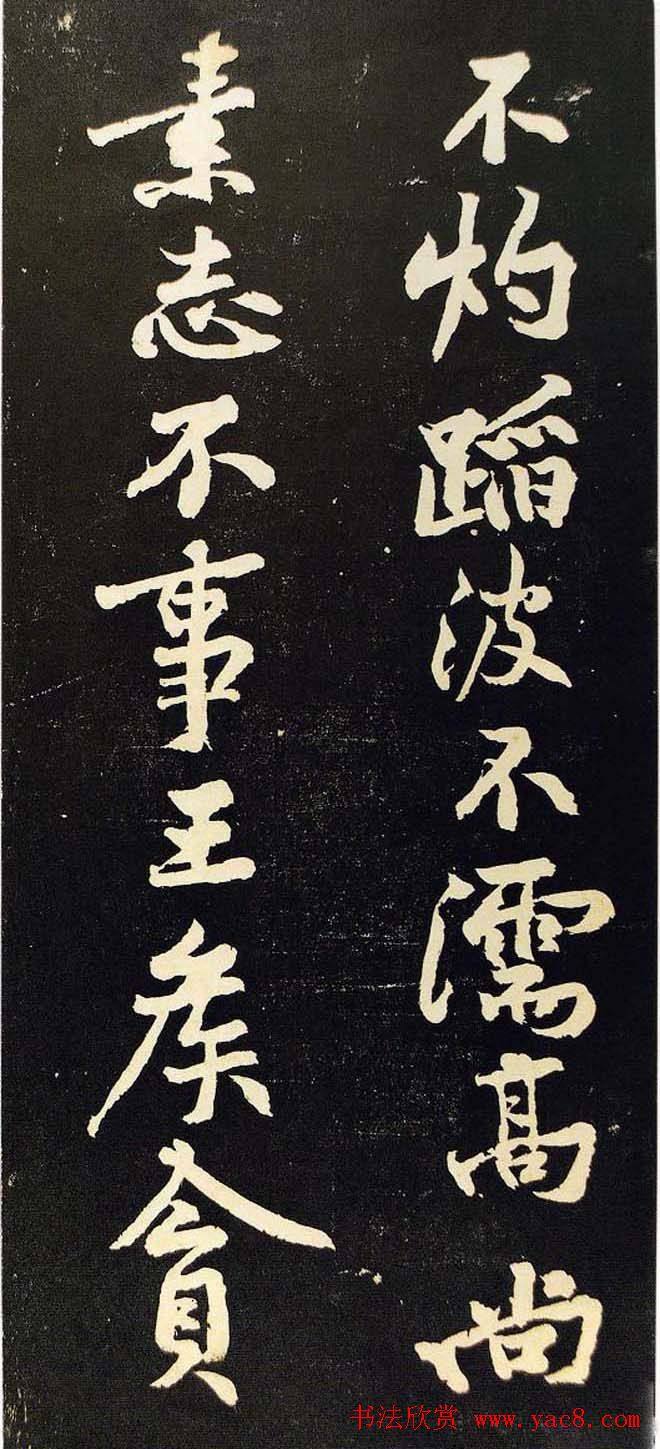 不灼蹈波不濡高尚
素志不事王矦貪
书法欣赏 www.yac8.com